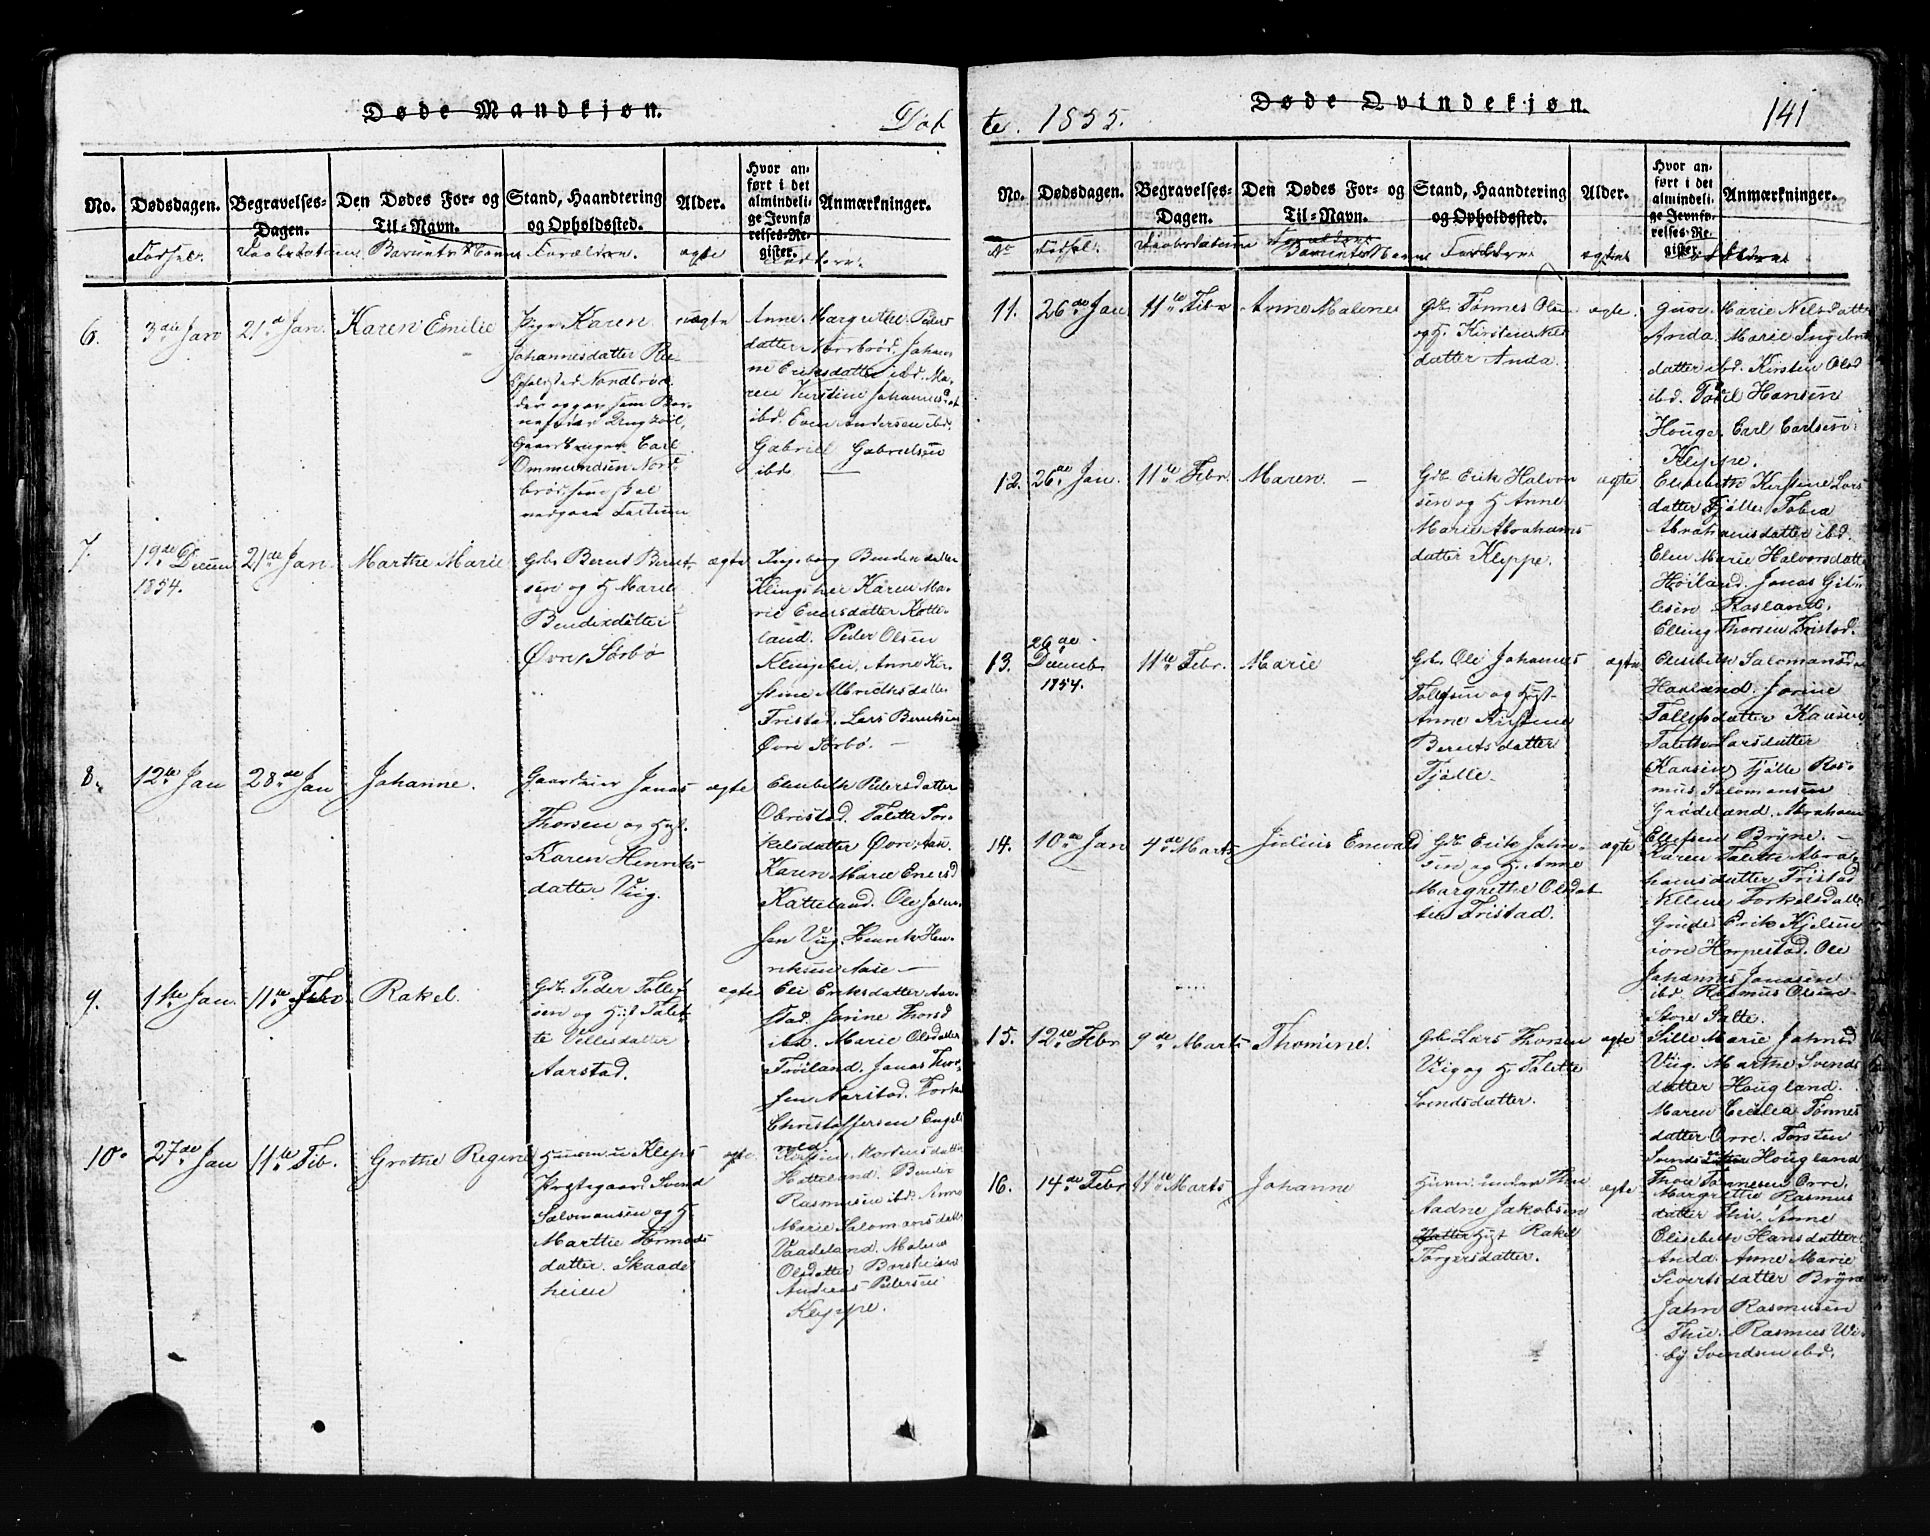 Døde Mandkjøn.
Døbte. 1855.
Døde Qvindekjøn.
141
No. Dødsdagen. Begravelses-Dagen. Den Dødes For- og Til-Navn. Stand, Haandtering og Opholdssted. Alder. Hvor anført i det almindelige Jevnførelses-Register. Anmærkninger.
Fødsel. Daabsdatum Barnets Navn Forældre. ægte Faddere.
6. 3die Jan 21de Jan. Karen Emilie
Pige Karen
Johannesdatter
Opholdsted Nordbrød
Gaardbruger Carl
Ommundsen Nord-
brød, som skal
uægte
Anne Margrethe Peders
datter Nordbrød. Johan
ne Eriksdatter ibd. Ma-
ren Kirstine Johannesdat
ibd. Even Andersen ibd.
Gabriel Gabrielsen
ibd.
7. 19de Decem 1854. 21de Jan. Marthe Marie
Gdb. Berent Berent-
sen og H. Marie
Bendixdatter
Øvre Sørbø
ægte
Ingeborg Bendixdatter
Klingshei Karen Ma-
rie Eneisdatter Katte-
land. Peder Olsen
Klingshei, Anne Kir-
stine Albrethsdatter
Tristad. Lars Berentsen
Øvre Sørbø. —
8. 12te Jan 28de Jan Johanne.
Gaardmr Jonas
Thorsen og Hust.
Karen Henriks-
datter Viig.
ægte
Elisabeth Pedersdatter
Obrestad. Talette Tor-
kelsdatter Øvre Aase.
Karen Marie Eneisd
Katteland. Ole John-
sen Viig. Henrik Hen-
riksen Aase —
9. 1ste Jan. 11te Febr. Rakel.
Gdb. Peder Tollef-
sen og Hust Talet-
te Vellesdatter
Aarstad.
ægte
Eli Eriksdatter Aar-
stad. Jorine Thorsd
ibd. Marie Olsdatter
Frøiland. Jonas Thor-
sen Aarstad. Torkel
Christoffersen Engels
vold.
10. 27de Jan 11te Feb. Grethe Regine
Huusm. u Klepp
Præstegaard Svend
Salomonsen og H
Marthe Tormods
datter. Skaade
heien
ægte.
Kirsten Mortensdatter
Hatteland. Bendix
Rasmussen ibd. Anne
Marie Salomonsdatter
Vaadeland. Malene
Olsdatter Borsheim
Andreas Pedersen
Kleppe.
No. Dødsdagen. Begravelses-Dagen. Den Dødes For- og Til-Navn. Stand, Haandtering og Opholdssted. Alder. Hvor anført i det almindelige Jevnførelses-Register. Anmærkninger.
No Fødsel. Daabsdatum Forældre Barnets Navn Forældre ægte Faddere
11. 26de Jan 11te Febr Anne Malene
Gdb. Tønnes Olsen
og H. Kirsten Nils
datter Anda.
ægte.
Guru Marie Nilsdatter
Anda. Marie Ingebret
datter ibd. Kirsten Olsd
ibd. Poul Hansen
Houge. Carl Carlsen
Kleppe.
12. 26de Jan. 11te Febr. Maren. —
Gdb. Erik Halvor
sen og H. Anne
Marie Abrahams
datter Kleppe.
ægte
Elisebeth Kirstine Lars
datter Tjøtte. Tobia
Abrahamsdatter ibd.
Elen Marie Halvorsdatter
Høiland. Jonas Git-
lesen Rosland.
Elling Thorsen Tristad.
13. 26de Decemb. 1854. 11te Febr. Marie
Gdb. Ole Johannes
Tollefsen og Hust
Anne Kirstine
Berentsdatter
Tjøtte.
ægte
Elisebeth Salomonsdat
Haaland. Jorine
Tollefsdatter Kaasen
Talette Larsdatter
Kaasen, Tjøtte Ras-
mus Salomonsen
Grødeland. Abraham
Ellefsen Bryne. —
14. 10de Jan 4de Marts Julius Enevald
Gdb. Erik John-
sen og H. Anne
Margrethe Olsdat
ter Tristad.
ægte
Karen Talette Abra-
hamsdatter Tristad
Elline Torkelsdatter
Grude. Erik Kjelsen
øvre Horpestad. Ole
Johannes Jonasen
ibd. Rasmus Olsen
Store Salte.
15. 12te Febr 9de Marts Thomine.
Gdb Lars Thorsen
Viig og H. Talette
Svendsdatter.
ægte
Sille Marie Johnsd
Viig. Marthe Svends
datter Hougland.
Maren Cecilia Tønnes
datter Orre. Torsten
Svendsen Hougland
Thor Tønnesen Orre.
16. 14de Febr 11te Marts Johanne
Husm: under Thu
Aadne Jakobsen
datter Hust Rakel
Torgersdatter.
ægte
Margrethe Rasmus
datter Thu. Anne
Elisebeth Hansdatter
Anda. Anne Marie
Sivertsdatter Bryne
John Rasmusen
Thu. Rasmus Wi-
by Svendsen ibd.